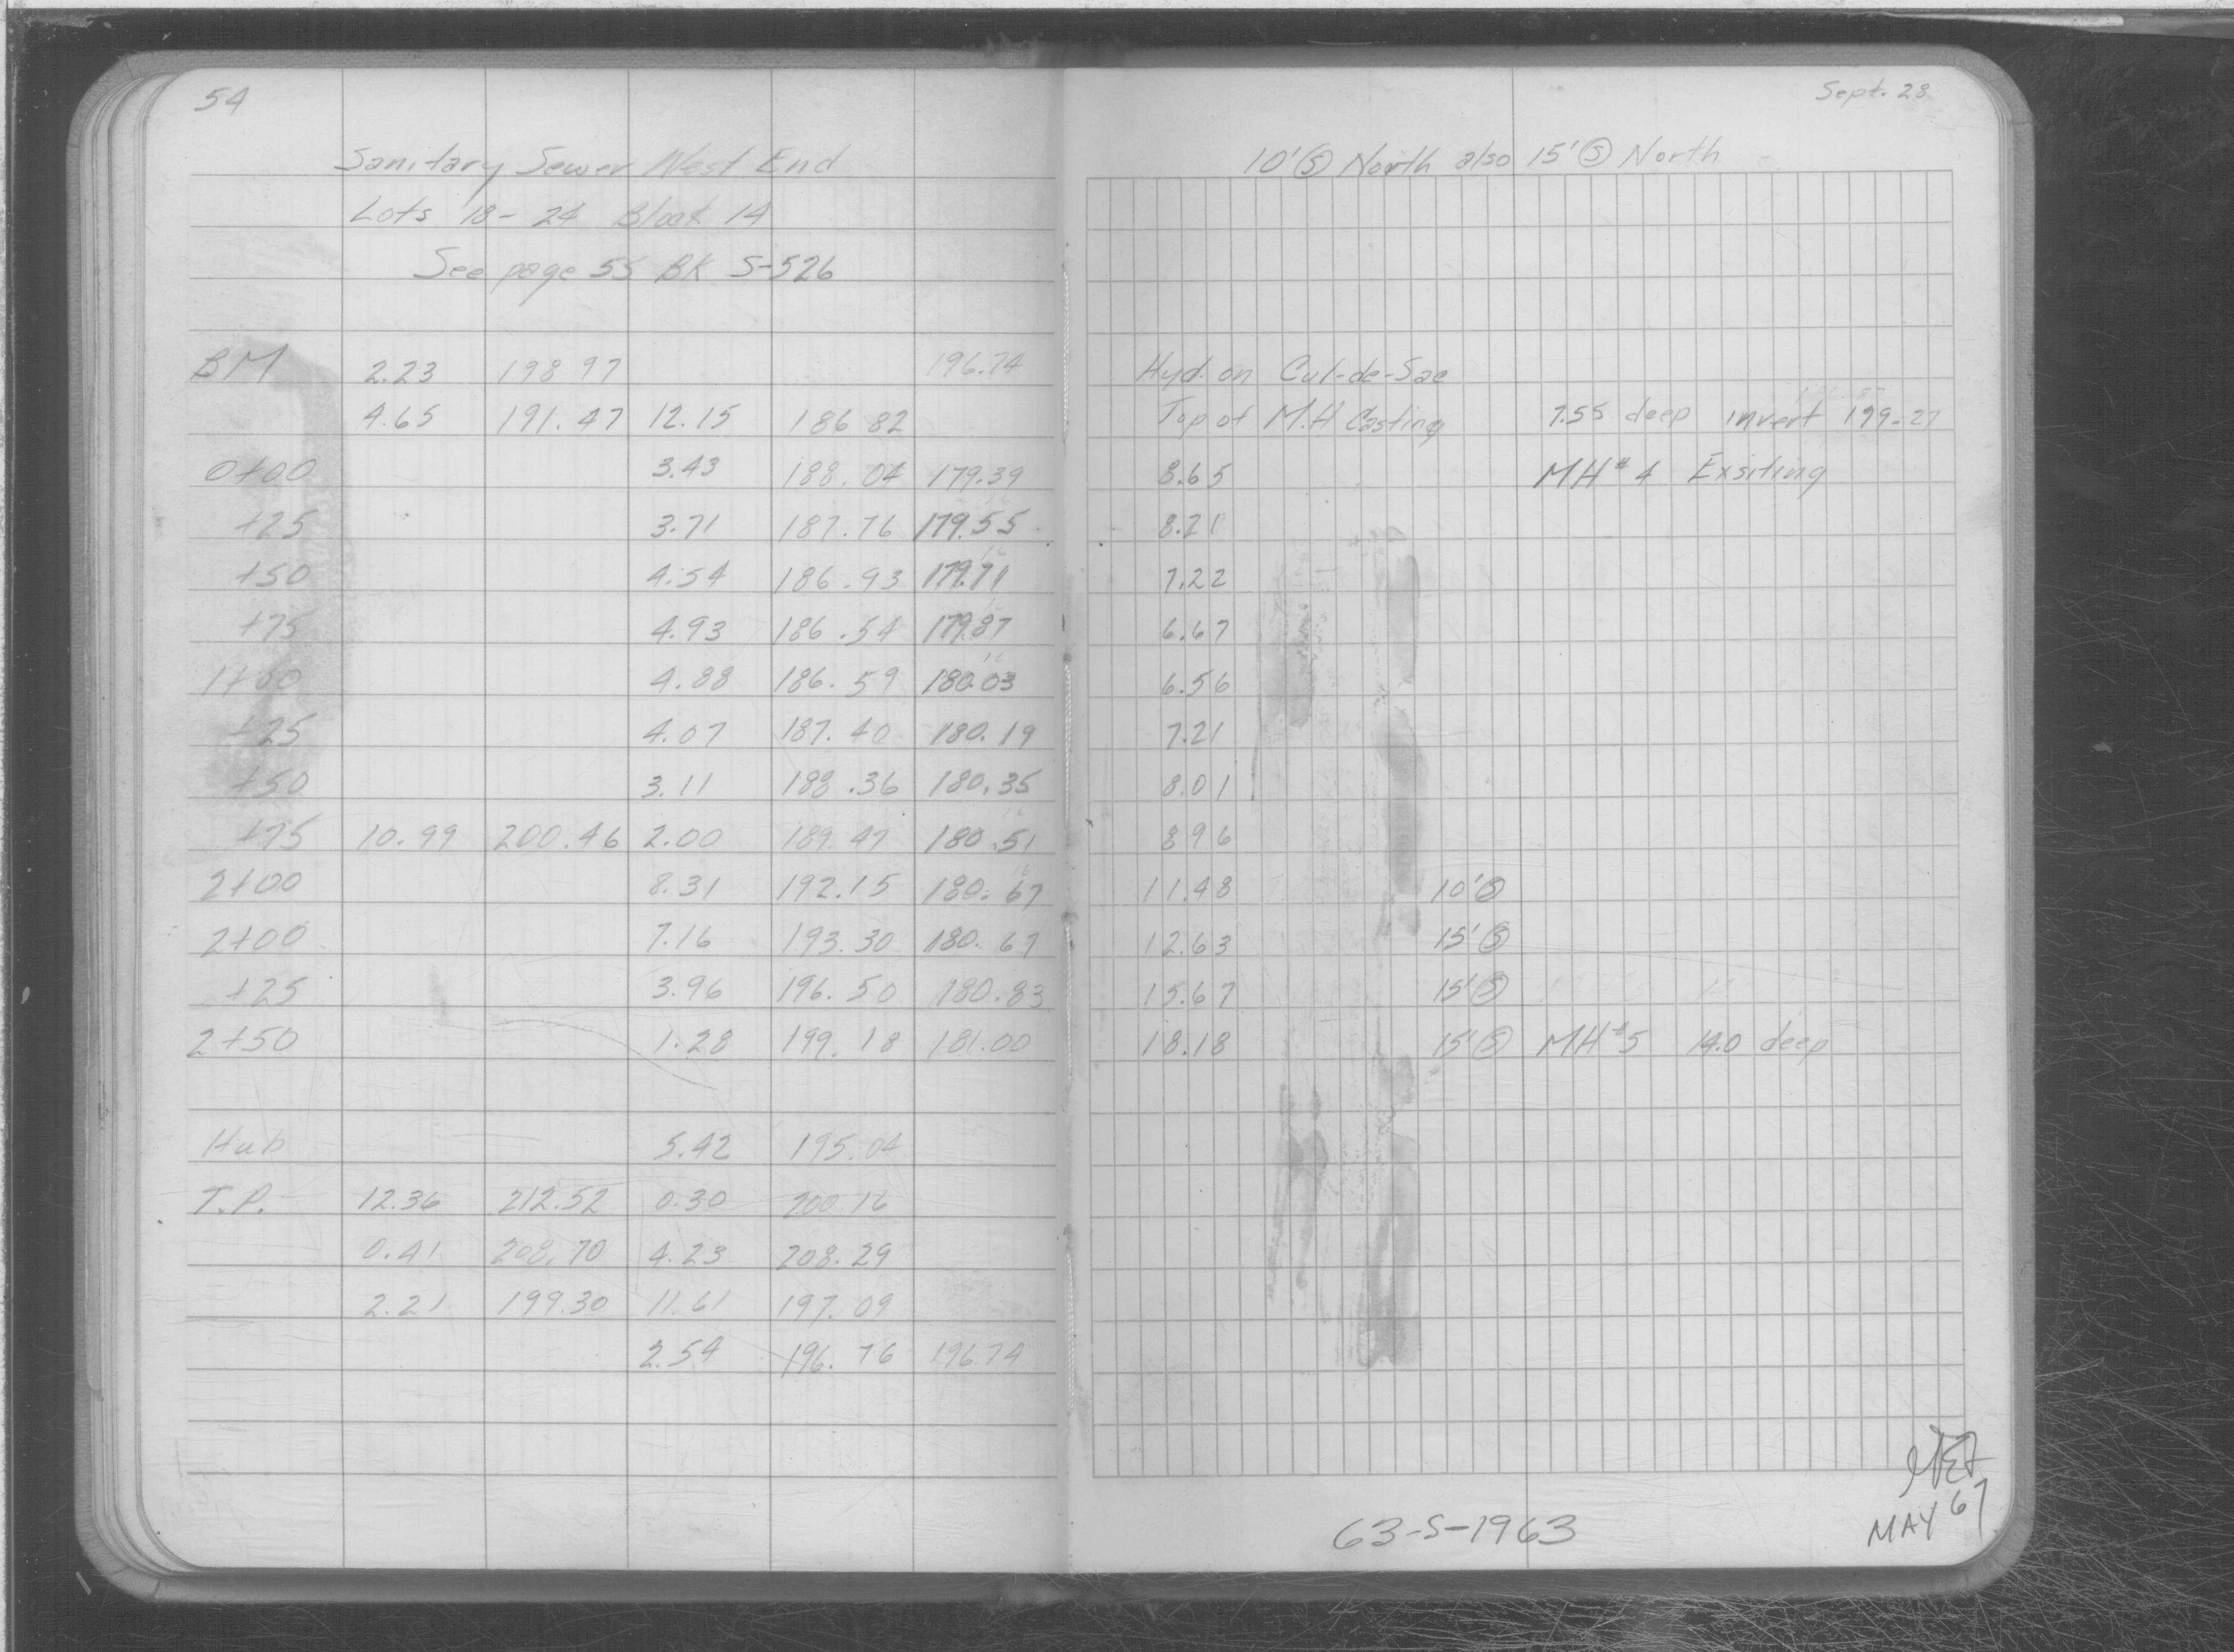 54
Sanitary Sewer West End
Lots 18-24 Block 14
See page 55 BK S-526
BM 2.23 198.97 196.74
4.65 191.47 12.15 186.82
0+00 3.43 188.04 179.39
+25 3.71 187.76 179.55
+50 4.54 186.93 179.71
+75 4.93 186.54 179.87
1+00 4.88 186.59 180.03
+25 4.07 187.40 180.19
+50 3.11 188.36 180.35
+75 10.99 200.46 2.00 189.47 180.51
2+00 8.31 192.15 180.67
2+00 7.16 193.30 180.67
+25 3.96 196.50 180.83
2+50 1.28 199.18 181.00
Hub 5.42 195.04
T.P. 12.36 212.52 0.30 200.16
0.41 208.70 4.23 208.29
2.21 199.30 11.61 197.09
2.54 196.76 196.74
Sept. 28
10' Ⓢ North also 15' Ⓢ North
Hyd. on Cul-de-Sac
Top of M.H Casting 7.55 deep invert 179.27
8.65 MH #4 Exsiting
8.21
7.22
6.67
6.56
7.21
8.01
8.96
11.48 10' Ⓢ
12.63 15' Ⓢ
15.67 15' Ⓢ
18.18 15' Ⓢ MH #5 14.0 deep
MAY 67
63-S-1963